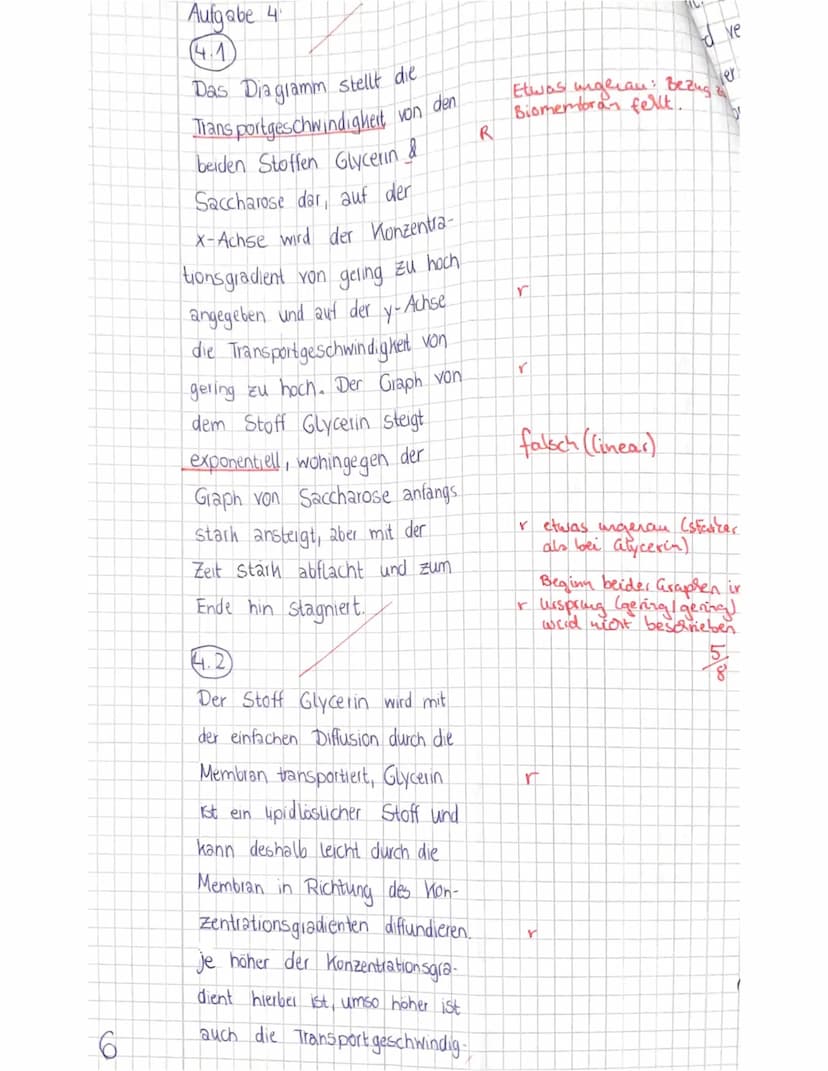 Aufgabe 4
4.1
Das Diagramm stellt die
Transportgeschwindigkeit von den
beiden Stoffen Glycerin &
Saccharose dar, auf der
x-Achse wird der Konzentra-
tionsgradient von gering zu hoch
angegeben und auf der y-Achse
die Transportgeschwindigkeit von
gering zu hoch. Der Graph von
dem Stoff Glycerin steigt
exponentiell, wohingegen der
Graph von Saccharose anfangs
stark ansteigt, aber mit der
Zeit stark abflacht und zum
Ende hin stagniert.
Etwas ungenau: Bezug
Biomembran fehlt.
R
r
r
falsch (linear)
r etwas ungenau (stärker
als bei Glycerin)
Beginn beider Graphen
r Ursprung (gering/gering)
wird nicht beschrieben
5/8
4.2
Der Stoff Glycerin wird mit
der einfachen Diffusion durch die
Membran transportiert, Glycerin
ist ein lipidlöslicher Stoff und
kann deshalb leicht durch die
Membran in Richtung des Kon-
zentrationsgradienten diffundieren.
je höher der Konzentrationsgra-
dient hierbei ist, umso höher ist
auch die Transportgeschwindig-
r
r
6